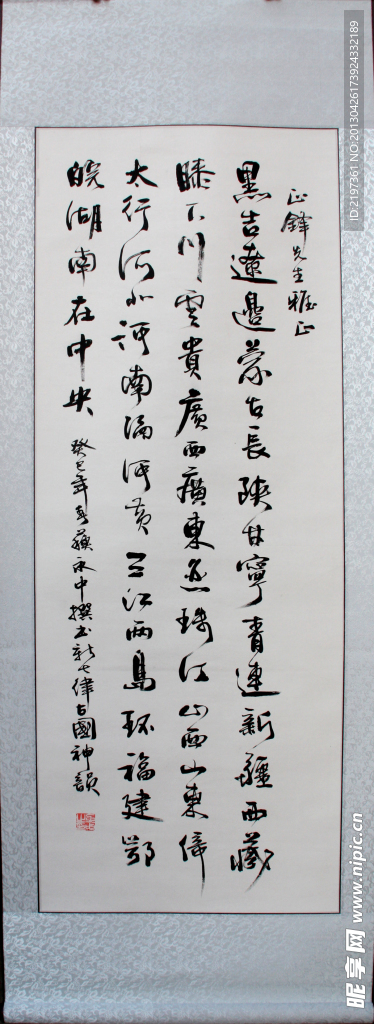 正鋒先生雅正
黑吉遼邊蒙古長陝甘寧青連新疆西藏
膝下川雲貴廣西廣東珠江山西山東傍
太行河北河南隔河黃三江兩島環福建鄂
皖湖南在中央
癸巳年春蘇永中撰書新七律古國神韻
昵享网 www.nipic.cn
ID:2197361 NO:20130426173924332189